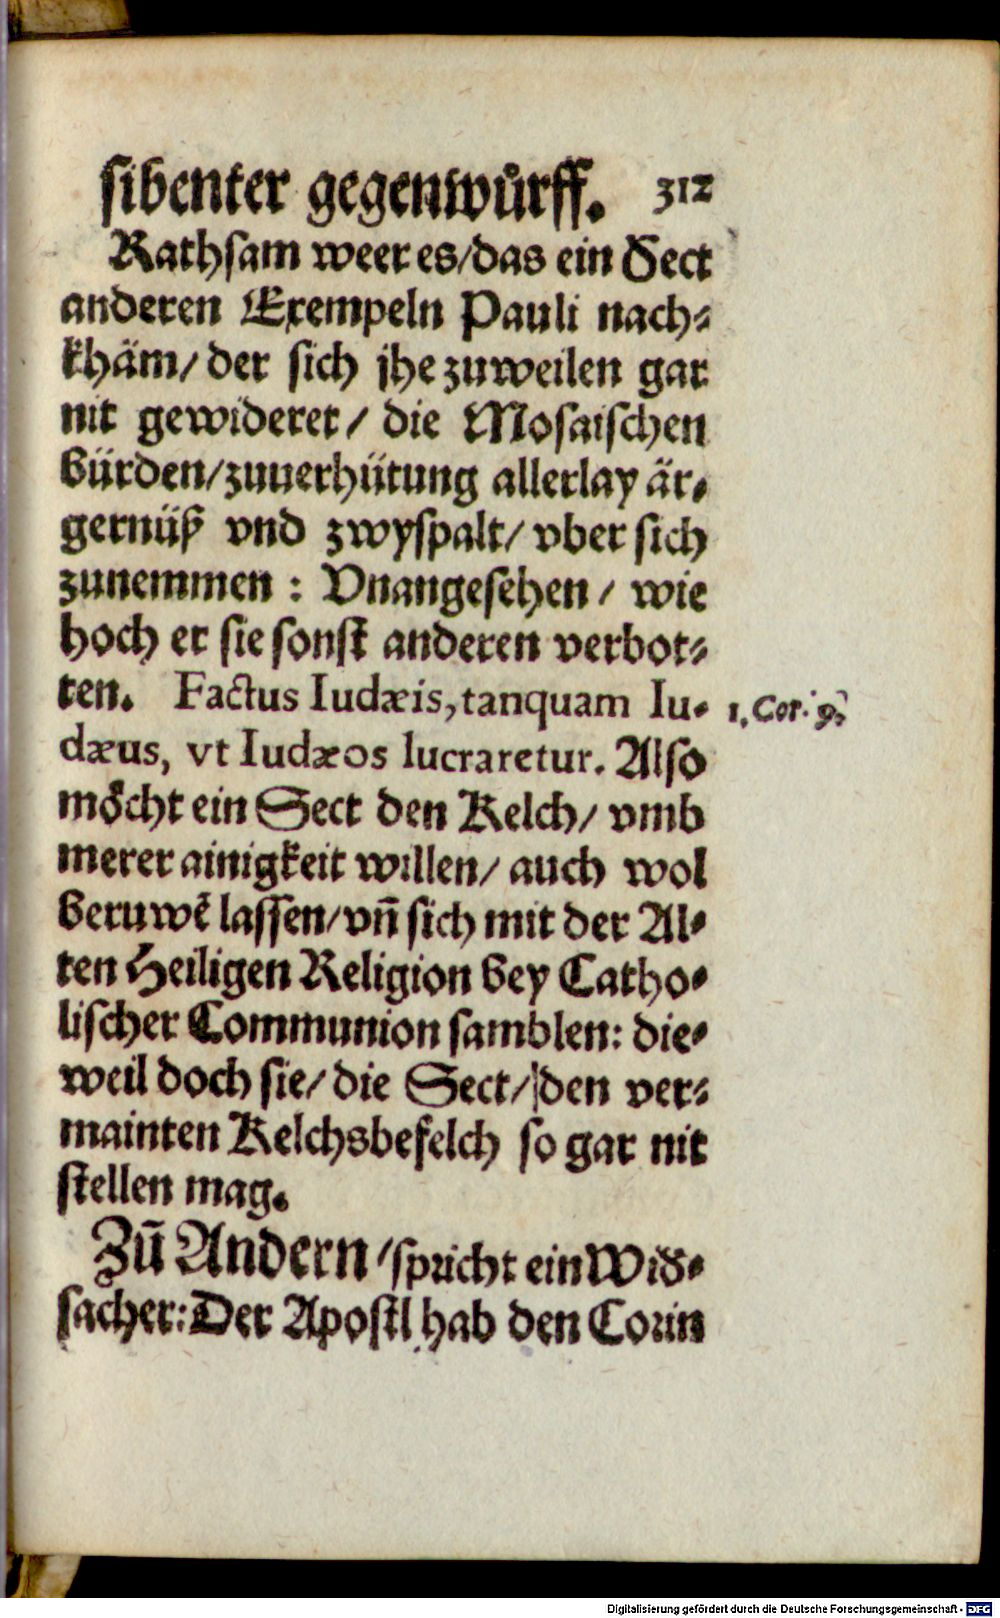 sibenter gegenwůrff. 312
Rathsam weer es/das ein Sect
anderen Exempeln Pauli nach⸗
khäm/ der sich jhe zuweilen gar
nit gewideret/ die Mosaischen
bürden/zuuerhütung allerlay är⸗
gernüß vnd zwyspalt/ vber sich
zunemmen : Vnangesehen / wie
hoch er sie sonst anderen verbot⸗
ten. Factus Iudæis, tanquam Iu⸗
1. Cor. 9.
dæus, vt Iudæos lucraretur. Also
möcht ein Sect den Kelch/ vmb
merer ainigkeit willen/ auch wol
beruwẽ lassen/vñ sich mit der Al⸗
ten Heiligen Religion bey Catho⸗
lischer Communion samblen: die⸗
weil doch sie/ die Sect/ den ver⸗
mainten Kelchsbefelch so gar nit
stellen mag.
Zů Andern/spricht ein Wid⸗
sacher: Der Apostl hab den Corin
Digitalisierung gefördert durch die Deutsche Forschungsgemeinschaft - DFG